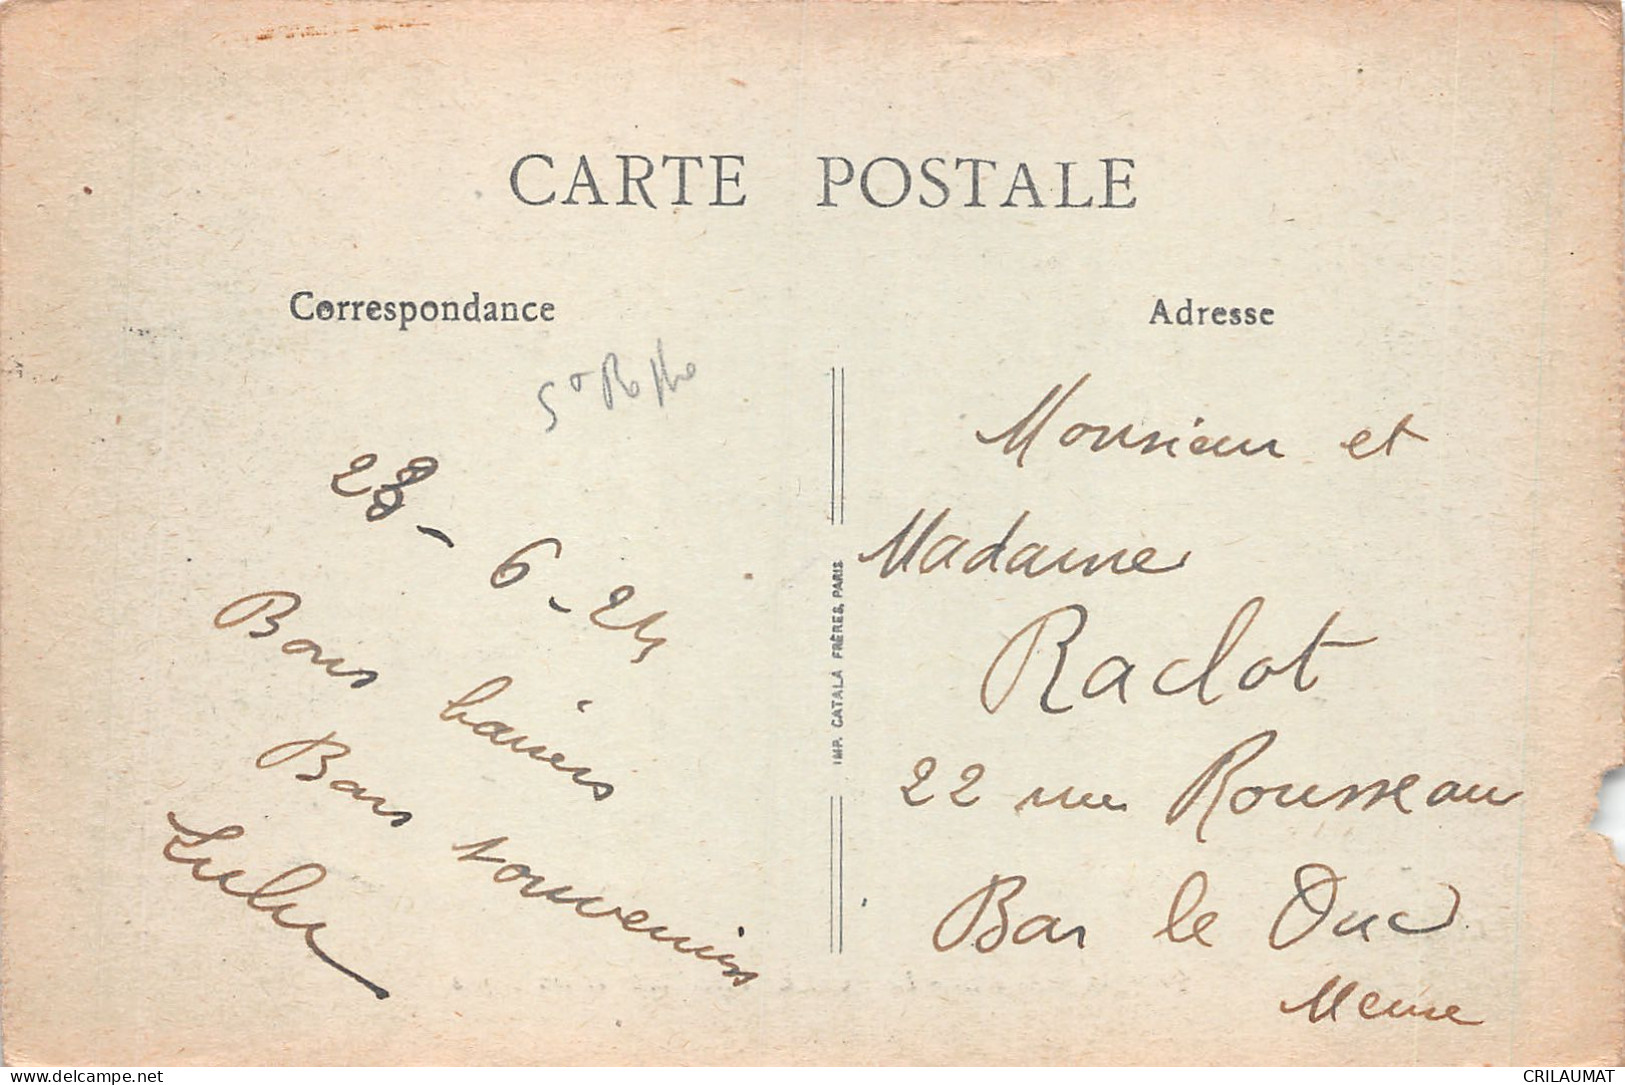 CARTE POSTALE
Correspondance
28-6-24
Bons baisers
Bons souvenirs
IMP. CATALA FRÈRES, PARIS
Adresse
Monsieur et
Madame
Raclot
22 rue Rousseau
Bar le Duc
Meuse
www.delcampe.net
CRILAUMAT